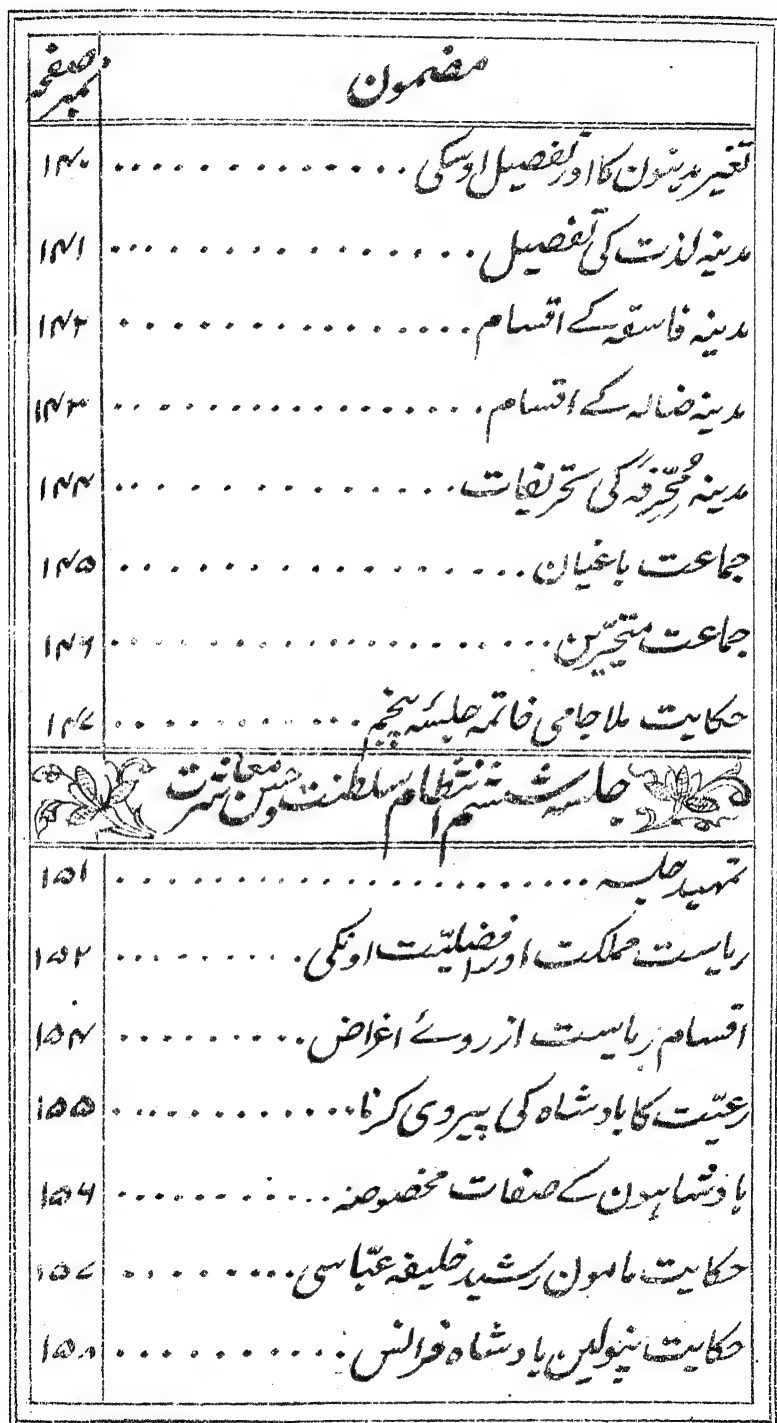 مضمون نمبر صفحہ
تغیر مدینون کا اور تفصیل اوسکی ۱۴۰
مدینہ لذت کی تفصیل ۱۴۱
مدینہ فاسقہ کے اقسام ۱۴۲
مدینہ ضالہ کے اقسام ۱۴۳
مدینہ مُحَرِّفَہ کی تحریفات ۱۴۴
جماعت باغیان ۱۴۵
جماعت متحیّرین ۱۴۶
حکایت ملا جامی خاتمہ جلسہ پنجم ۱۴۷
جلسہ ششم انتظام سلطنت و حسن معاشرت
تمہید جلسہ ۱۵۱
ریاست مملکت اور فضیلّت اونکی ۱۵۲
اقسام ریاست از روے اغراض ۱۵۴
رعیّت کا بادشاہ کی پیروی کرنا ۱۵۵
بادشاہون کے صفات مخصوصہ ۱۵۶
حکایت مامون رشید خلیفہ عبّاسی ۱۵۷
حکایت نپولین بادشاہ فرانس ۱۵۸